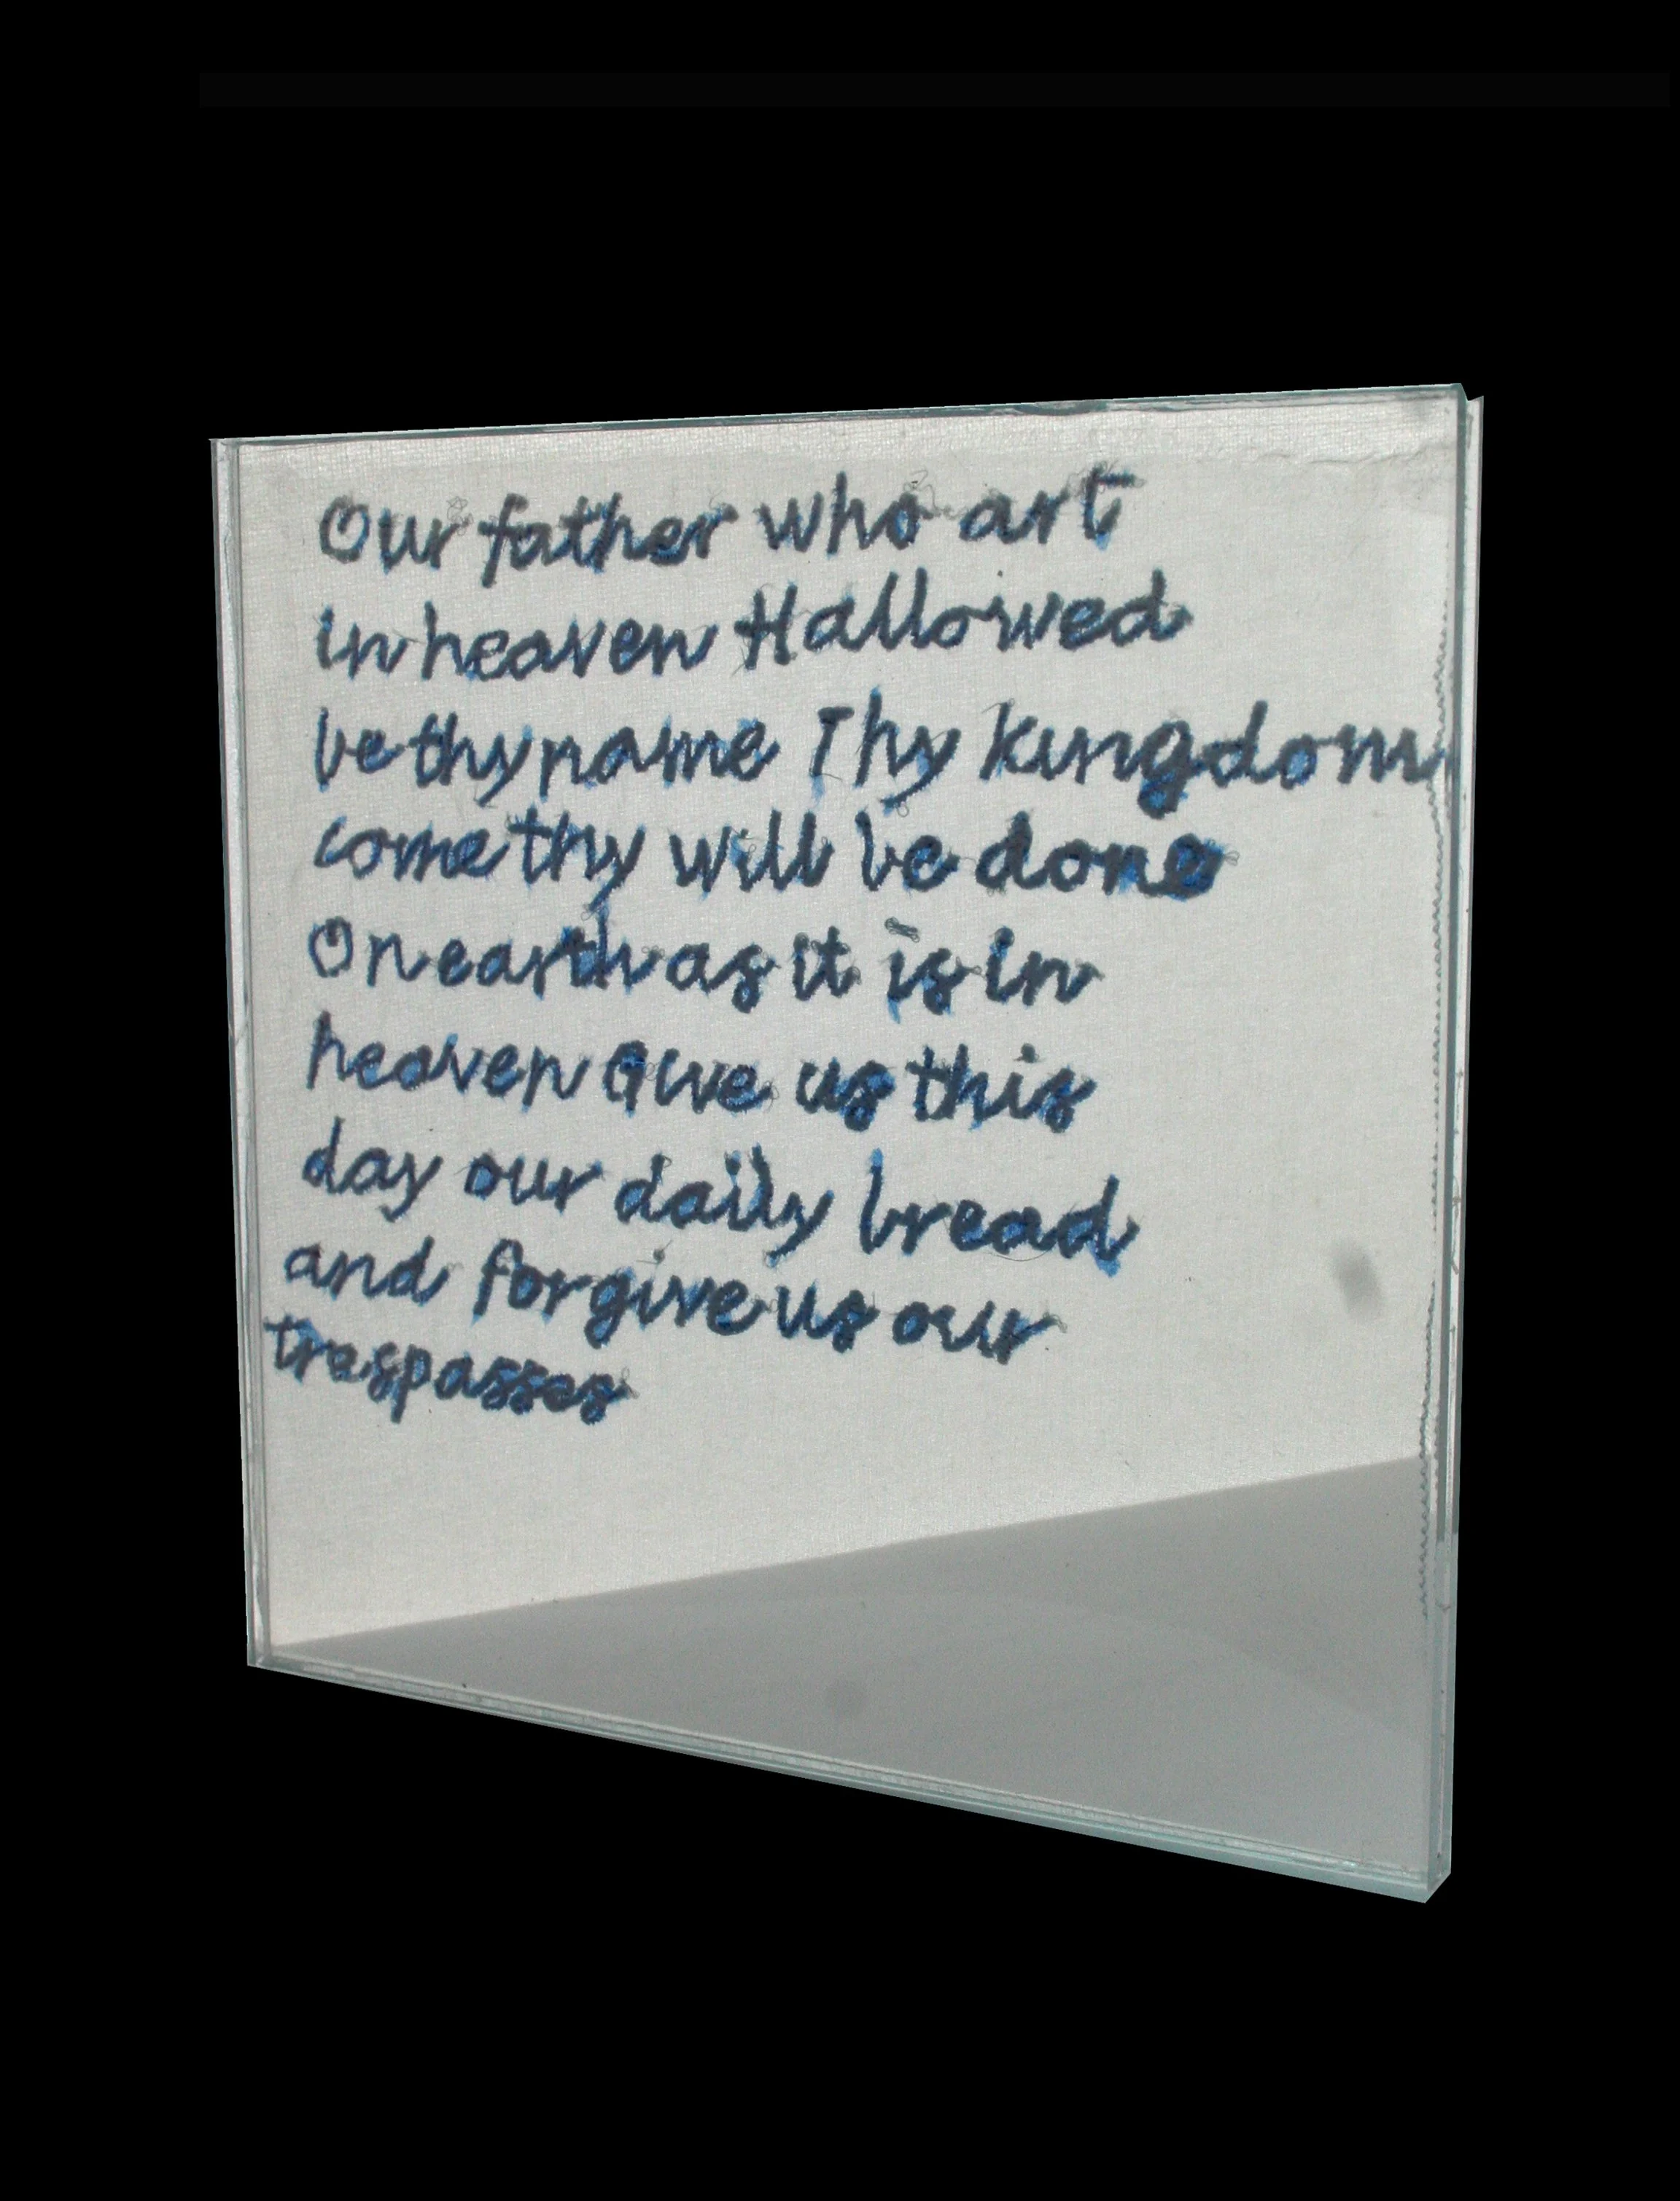 Our father who art
in heaven Hallowed
be thy name Thy kingdom
come thy will be done
On earth as it is in
heaven Give us this
day our daily bread
and forgive us our
trespasses